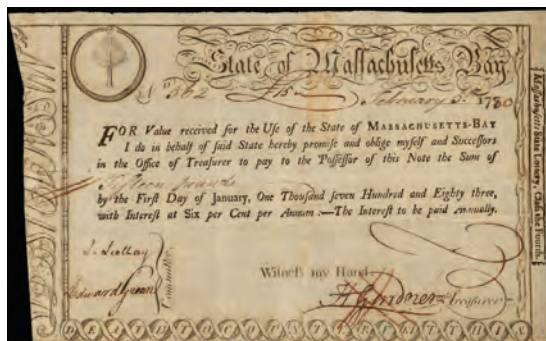 State of Massachusetts Bay
No 362 £15 February 3d 1780
FOR Value received for the Use of the State of MASSACHUSETTS-BAY
I do in behalf of said State hereby promise and oblige myself and Successors
in the Office of Treasurer to pay to the Possessor of this Note the Sum of
Fifteen pounds
by the First Day of January, One Thousand seven Hundred and Eighty three,
with Interest at Six per Cent per Annum :—The Interest to be paid Annually.
Witness my Hand—
Edward Green
Committee
H Gardner Treasurer
DEATH TO COUNTERFEIT THIS
Massachusetts State Lottery, Class the Fourth.